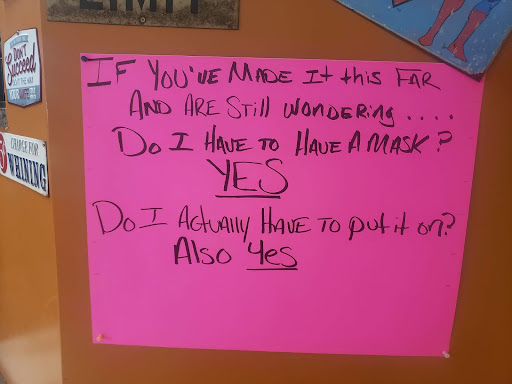 LIMIT
IF YOU'VE MADE IT this FAR
AND ARE Still WONDERING....
DO I HAVE TO HAVE A MASK?
YES
DO I ACTUAlly HAVE TO put it on?
Also Yes
DON'T
Succeed
CHARGE FOR
WHINING